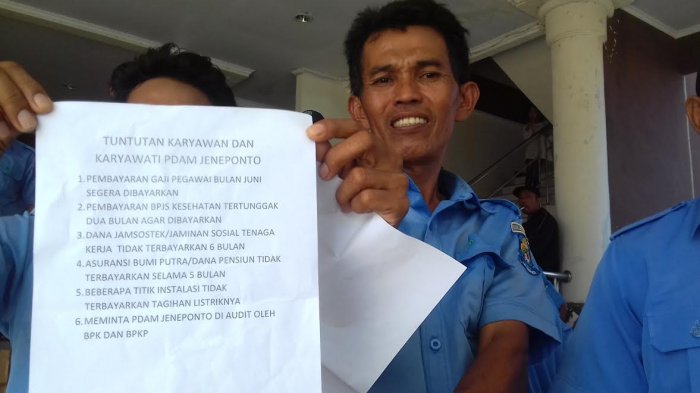 TUNTUTAN KARYAWAN DAN
KARYAWATI PDAM JENEPONTO
1. PEMBAYARAN GAJI PEGAWAI BULAN JUNI
SEGERA DIBAYARKAN
2. PEMBAYARAN BPJS KESEHATAN TERTUNGGAK
DUA BULAN AGAR DIBAYARKAN
3. DANA JAMSOSTEK/JAMINAN SOSIAL TENAGA
KERJA TIDAK TERBAYARKAN 6 BULAN
4. ASURANSI BUMI PUTRA/DANA PENSIUN TIDAK
TERBAYARKAN SELAMA 5 BULAN
5. BEBERAPA TITIK INSTALASI TIDAK
TERBAYARKAN TAGIHAN LISTRIKNYA
6. MEMINTA PDAM JENEPONTO DI AUDIT OLEH
BPK DAN BPKP